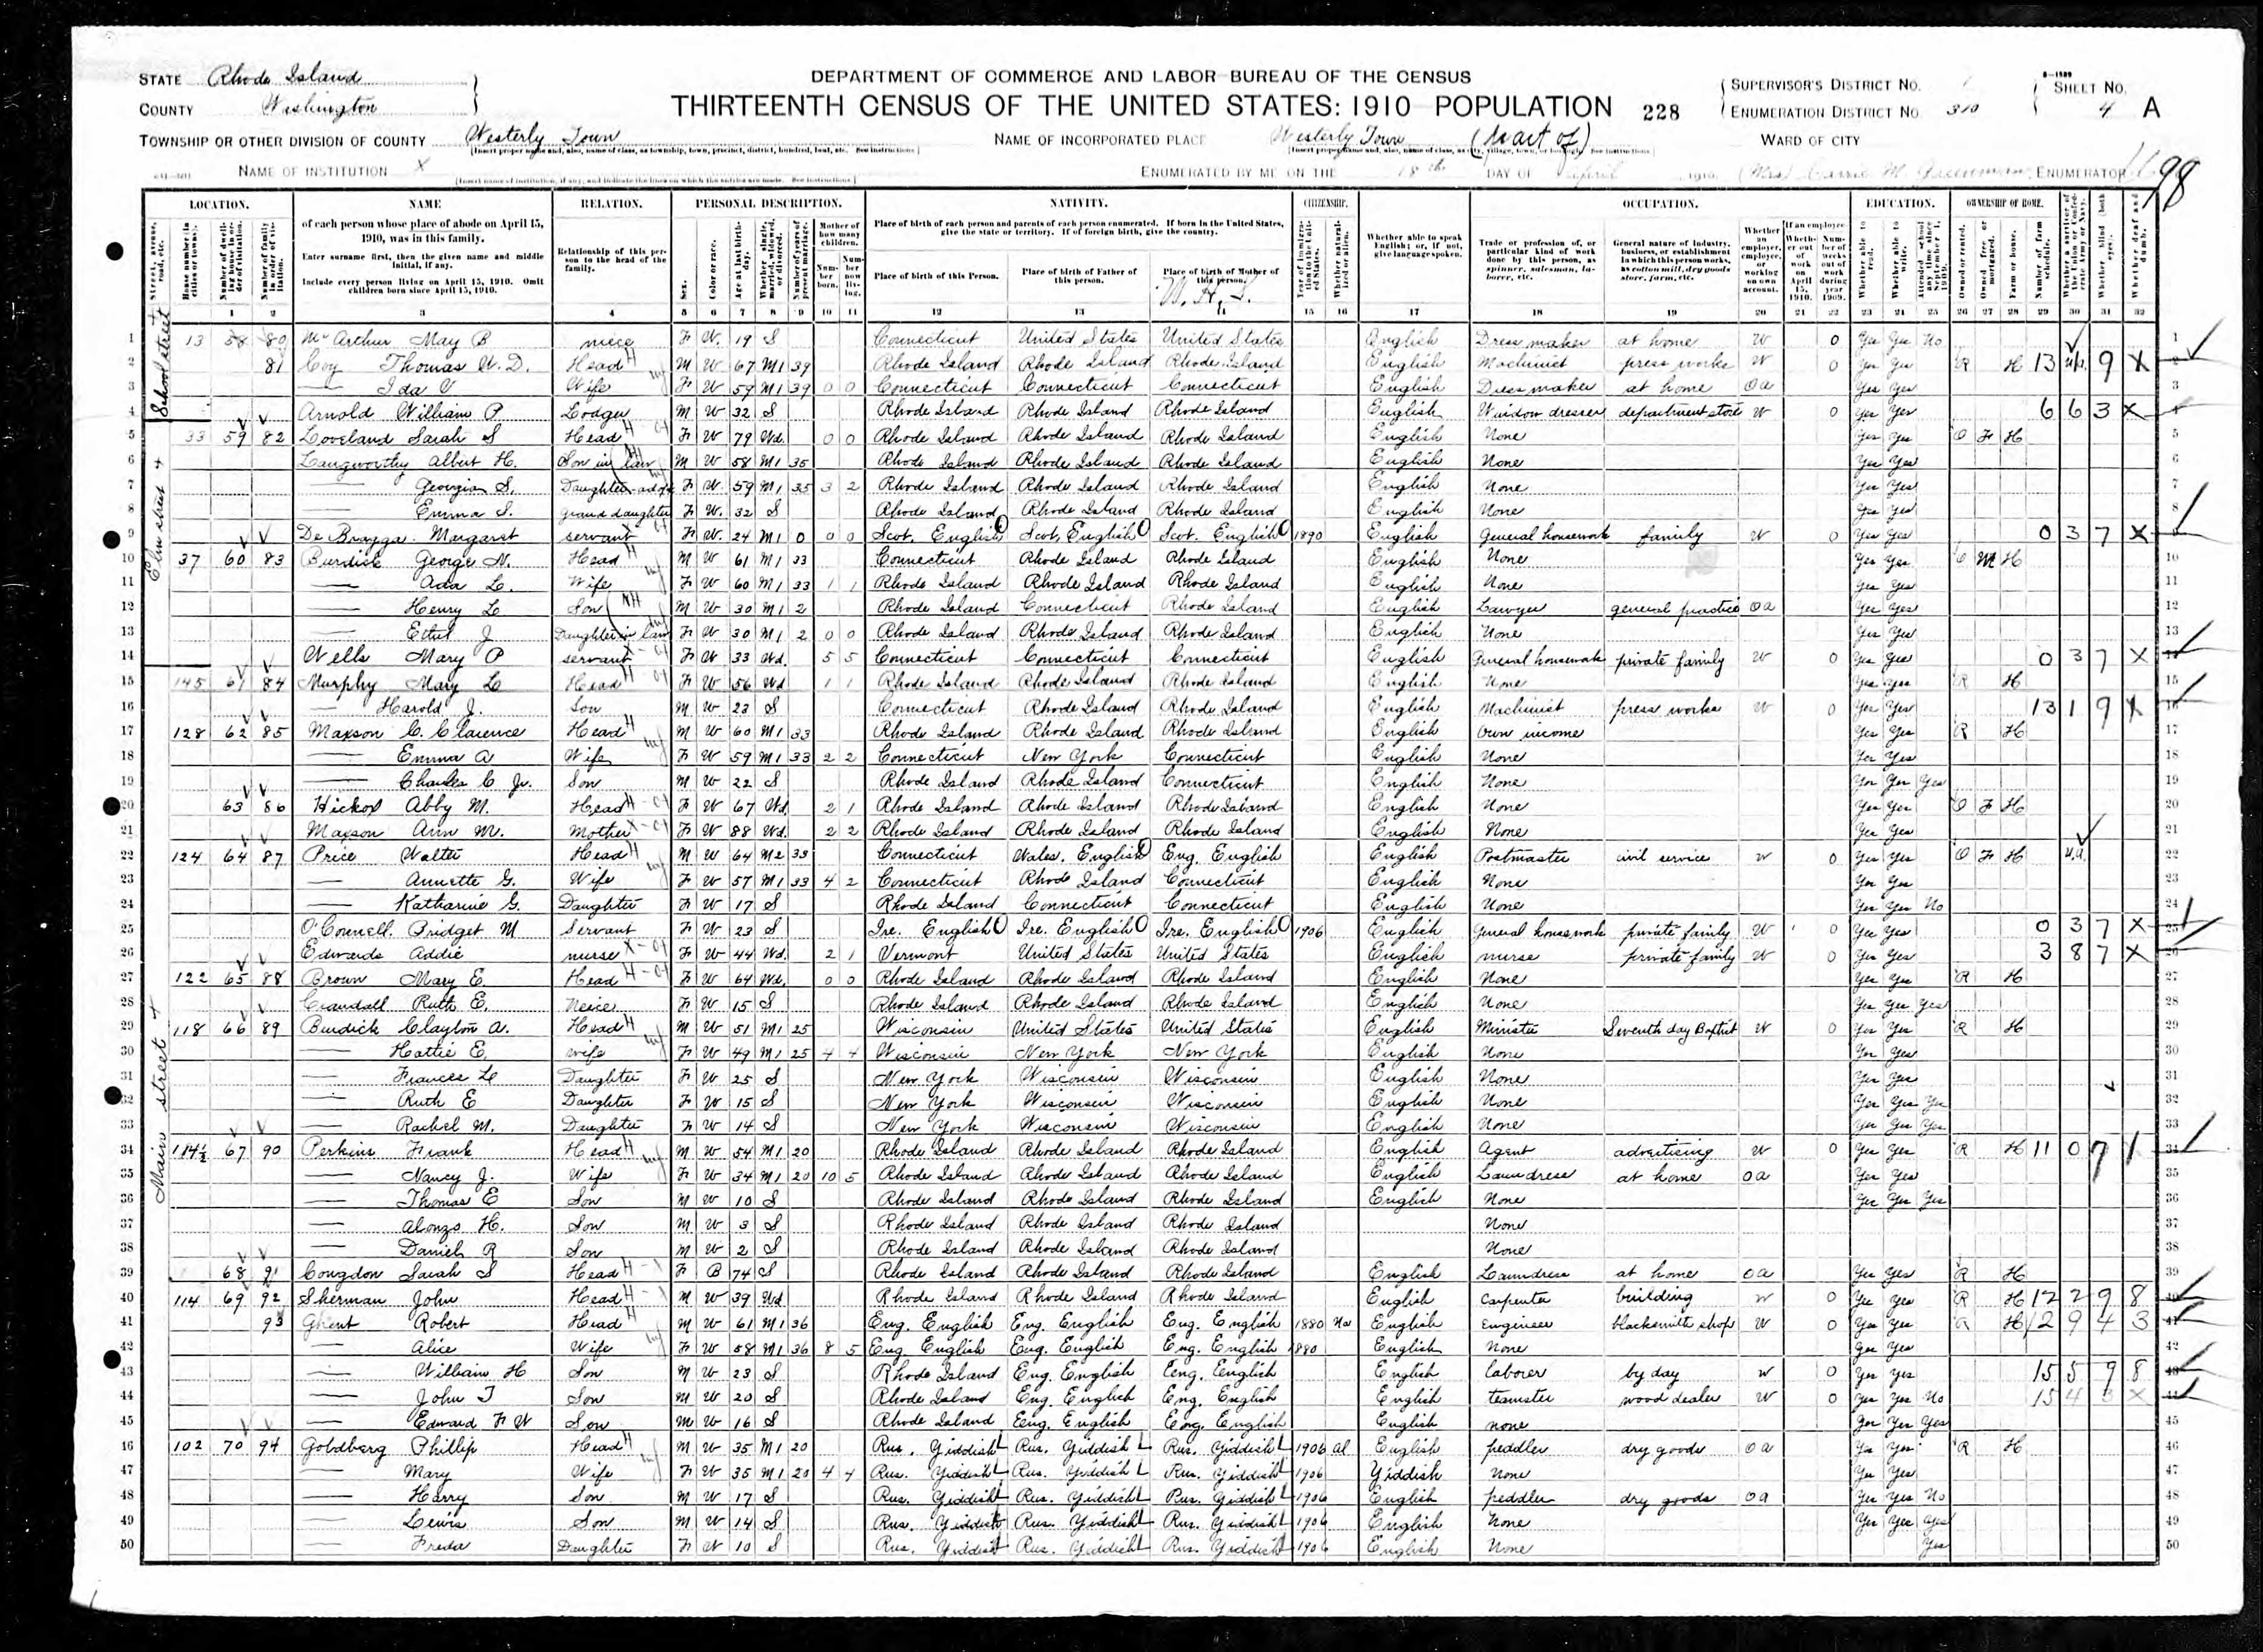 STATE Rhode Island
COUNTY Washington
DEPARTMENT OF COMMERCE AND LABOR—BUREAU OF THE CENSUS
THIRTEENTH CENSUS OF THE UNITED STATES: 1910 POPULATION 228
SUPERVISOR'S DISTRICT NO. 1
ENUMERATION DISTRICT NO. 310
SHEET NO. 4 A
TOWNSHIP OR OTHER DIVISION OF COUNTY Westerly Town
NAME OF INCORPORATED PLACE Westerly Town (part of)
WARD OF CITY
NAME OF INSTITUTION X
ENUMERATED BY ME ON THE 18th DAY OF April, 1910. (Mrs) Carrie M. Greenman, ENUMERATOR
98
LOCATION. NAME RELATION. PERSONAL DESCRIPTION. NATIVITY. CITIZENSHIP. OCCUPATION. EDUCATION. OWNERSHIP OF HOME.
of each person whose place of abode on April 15, 1910, was in this family.
Enter surname first, then the given name and middle initial, if any.
Include every person living on April 15, 1910. Omit children born since April 15, 1910.
Relationship of this person to the head of the family.
Place of birth of each person and parents of each person enumerated. If born in the United States, give the state or territory. If of foreign birth, give the country.
Place of birth of this Person. Place of birth of Father of this person. Place of birth of Mother of this person.
Whether able to speak English; or, if not, give language spoken.
Trade or profession of, or particular kind of work done by this person, as spinner, salesman, laborer, etc.
General nature of industry, business, or establishment in which this person works, as cotton mill, dry goods store, farm, etc.
School street
1 13 58 80 McArthur May B niece F W 19 S Connecticut United States United States English Dressmaker at home W 0 Yes Yes No
2 81 Coy Thomas W. D. Head M W 67 M1 39 Rhode Island Rhode Island Rhode Island English Machinist press works W 0 Yes Yes R H
3 — Ida V Wife F W 59 M1 39 0 0 Connecticut Connecticut Connecticut English Dressmaker at home Oa Yes Yes
4 Arnold William P Lodger M W 32 S Rhode Island Rhode Island Rhode Island English Window dresser department store W 0 Yes Yes 6 6 3 X
Elm street
5 33 59 82 Loveland Sarah S Head F W 79 Wd. 0 0 Rhode Island Rhode Island Rhode Island English None Yes Yes O F H
6 Langworthy Albert H. Son in law M W 58 M1 35 Rhode Island Rhode Island Rhode Island English None Yes Yes
7 — Georgia S. Daughter F W 59 M1 35 3 2 Rhode Island Rhode Island Rhode Island English None Yes Yes
8 — Emma S. Grand daughter F W 32 S Rhode Island Rhode Island Rhode Island English None Yes Yes
9 De Bragga Margaret servant F W 24 M1 0 0 0 Scot. English Scot. English Scot. English 1890 English General housework family W 0 Yes Yes 0 3 7 X
10 37 60 83 Burdick George N. Head M W 61 M1 33 Connecticut Rhode Island Rhode Island English None Yes Yes O M H
11 — Ada L. Wife F W 60 M1 33 1 1 Rhode Island Rhode Island Rhode Island English None Yes Yes
12 — Henry L Son M W 30 M1 2 Rhode Island Connecticut Rhode Island English Lawyer general practice Oa Yes Yes
13 — Ethel J Daughter in law F W 30 M1 2 0 0 Rhode Island Rhode Island Rhode Island English None Yes Yes
14 Wells Mary P servant F W 33 Wd. 5 5 Connecticut Connecticut Connecticut English General housework private family W 0 Yes Yes 0 3 7 X
Main street
15 145 61 84 Murphy Mary L Head F W 56 Wd 1 1 Rhode Island Rhode Island Rhode Island English None Yes Yes R H
16 — Harold J. Son M W 23 S Connecticut Rhode Island Rhode Island English Machinist press works W 0 Yes Yes 13 1 9 X
17 128 62 85 Maxson C. Clarence Head M W 60 M1 33 Rhode Island Rhode Island Rhode Island English Own income Yes Yes R H
18 — Emma A Wife F W 59 M1 33 2 2 Connecticut New York Connecticut English None Yes Yes
19 — Charles C Jr. Son M W 22 S Rhode Island Rhode Island Connecticut English None Yes Yes Yes
20 63 86 Hickox Abby M. Head F W 67 Wd. 2 1 Rhode Island Rhode Island Rhode Island English None Yes Yes O F H
21 Maxson Ann M. Mother F W 88 Wd. 2 2 Rhode Island Rhode Island Rhode Island English None Yes Yes
22 124 64 87 Price Walter Head M W 64 M2 33 Connecticut Wales. English Eng. English English Postmaster civil service W 0 Yes Yes O F H U.A.
23 — Annette G. Wife F W 57 M1 33 4 2 Connecticut Rhode Island Connecticut English None Yes Yes
24 — Katharine G. Daughter F W 17 S Rhode Island Connecticut Connecticut English None Yes Yes No
25 O'Connell. Bridget M Servant F W 23 S Ire. English Ire. English Ire. English 1906 English General housework private family W 0 Yes Yes 0 3 7 X
26 Edwards Addie nurse F W 44 Wd. 2 1 Vermont United States United States English nurse private family W 0 Yes Yes 3 8 7 X
27 122 65 88 Brown Mary E. Head F W 64 Wd. 0 0 Rhode Island Rhode Island Rhode Island English None Yes Yes R H
28 Crandall Ruth E. Neice F W 15 S Rhode Island Rhode Island Rhode Island English None Yes Yes Yes
29 118 66 89 Burdick Clayton A. Head M W 51 M1 25 Wisconsin United States United States English Minister Seventh day Baptist W 0 Yes Yes R H
30 — Hattie E. wife F W 49 M1 25 4 4 Wisconsin New York New York English None Yes Yes
31 — Frances L Daughter F W 25 S New York Wisconsin Wisconsin English None Yes Yes
32 — Ruth E Daughter F W 15 S New York Wisconsin Wisconsin English None Yes Yes Yes
33 — Rachel M. Daughter F W 14 S New York Wisconsin Wisconsin English None Yes Yes Yes
34 114½ 67 90 Perkins Frank Head M W 54 M1 20 Rhode Island Rhode Island Rhode Island English Agent advertising W 0 Yes Yes R H 11 0 7 1
35 — Nancy J. Wife F W 34 M1 20 10 5 Rhode Island Rhode Island Rhode Island English Laundress at home Oa Yes Yes
36 — Thomas E Son M W 10 S Rhode Island Rhode Island Rhode Island English None Yes Yes Yes
37 — Alonzo H. Son M W 3 S Rhode Island Rhode Island Rhode Island None
38 — Daniel R Son M W 2 S Rhode Island Rhode Island Rhode Island None
39 68 91 Congdon Sarah S Head F B 74 S Rhode Island Rhode Island Rhode Island English Laundress at home Oa Yes Yes R H
40 114 69 92 Sherman John Head M W 39 Wd Rhode Island Rhode Island Rhode Island English Carpenter building W 0 Yes Yes R H 12 2 9 8
41 93 Ghent Robert Head M W 61 M1 36 Eng. English Eng. English Eng. English 1880 Na English Engineer blacksmith shop W 0 Yes Yes R H 12 9 4 3
42 — Alice Wife F W 58 M1 36 8 5 Eng. English Eng. English Eng. English 1880 English None Yes Yes
43 — William H Son M W 23 S Rhode Island Eng. English Eng. English English laborer by day W 0 Yes Yes 15 5 9 8
44 — John T Son M W 20 S Rhode Island Eng. English Eng. English English teamster wood dealer W 0 Yes Yes No 15 4 3 X
45 — Edward F W Son M W 16 S Rhode Island Eng. English Eng. English English none Yes Yes Yes
46 102 70 94 Goldberg Phillip Head M W 35 M1 20 Rus. Yiddish Rus. Yiddish Rus. Yiddish 1906 Al English peddler dry goods Oa Yes Yes R H
47 — Mary Wife F W 35 M1 20 4 4 Rus. Yiddish Rus. Yiddish Rus. Yiddish 1906 Yiddish None Yes Yes
48 — Harry Son M W 17 S Rus. Yiddish Rus. Yiddish Rus. Yiddish 1906 English peddler dry goods Oa Yes Yes No
49 — Lewis Son M W 14 S Rus. Yiddish Rus. Yiddish Rus. Yiddish 1906 English None Yes Yes Yes
50 — Freda Daughter F W 10 S Rus. Yiddish Rus. Yiddish Rus. Yiddish 1906 English None Yes